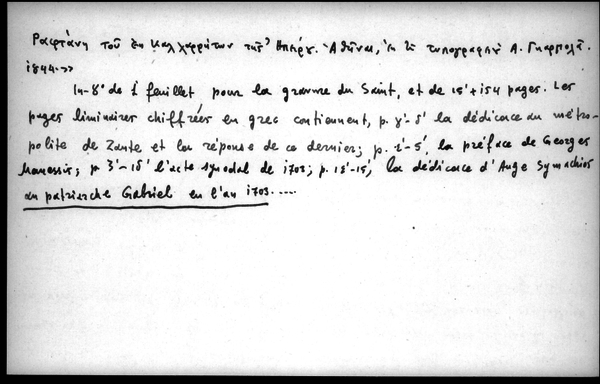 Ραφτάνη τοῦ ἐκ Καλαρρύτων τῆς Ἠπείρ. Ἀθῆναι, ἐκ τ. τυπογραφ. Α. Γκαρπολᾶ.
1844.>>
In-8° de 1 feuillet pour la gravure du Saint, et de ιε' + 154 pages. Les
pages liminaires chiffrées en grec contiennent, p. γ'-δ' la dédicace au métro-
polite de Zante et la réponse de ce dernier; p. la préface de Georges
p. l'acte synodal de 1703; p. la dédicace d'Ange Symachios
au patriarche Gabriel en l'an 1703.....